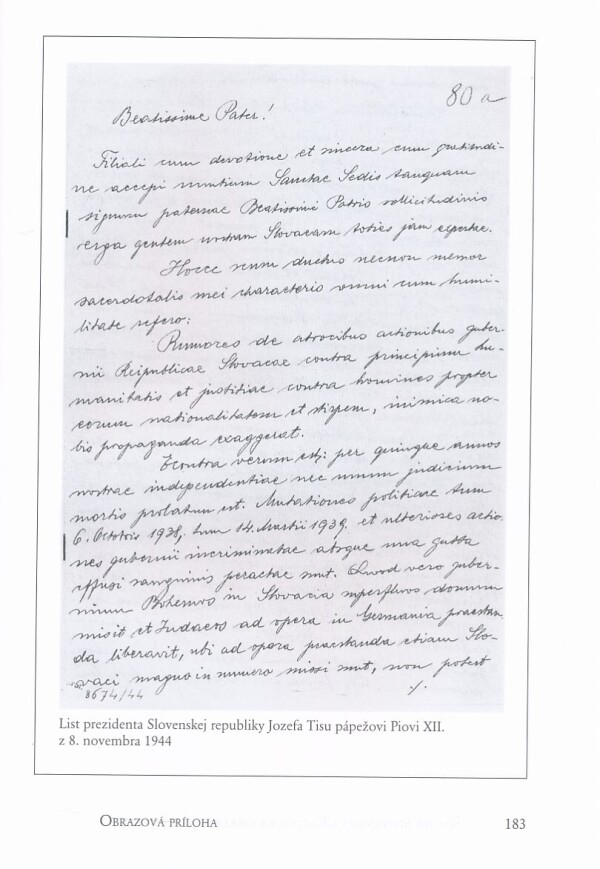 80 a
Beatissime Pater!
Filiali cum devotione et sincera cum gratitudi-
ne accepi nuntium Sanctae Sedis tanquam
signum paternae Beatissimi Patris sollicitudinis
erga gentem nostram Slovacam toties jam expertae.
Hocce sensu ductus necnon memor
sacerdotalis mei characteris omni cum humi-
litate refero:
Rumores de atrocibus actionibus guber-
nii Reipublicae Slovacae contra principium hu-
manitatis et justitiae contra homines propter
eorum nationalitatem et stirpem, inimica no-
bis propaganda exaggerat.
Econtra verum est: per quinque annos
nostrae independentiae nec unum judicium
mortis prolatum est. Mutationes politicae tum
6. Octobris 1938, tum 14. Martii 1939, et ulteriores actio-
nes gubernii incriminatae absque una gutta
effusi sanguinis peractae sunt. Quod vero guber-
nium Bohemos in Slovacia superfluos domum
misit et Judaeos ad opera in Germania praestan-
da liberavit, ubi ad opera praestanda etiam Slo-
vaci magno in numero missi sunt, non potest
8674/44
./.
List prezidenta Slovenskej republiky Jozefa Tisu pápežovi Piovi XII.
z 8. novembra 1944
OBRAZOVÁ PRÍLOHA
183